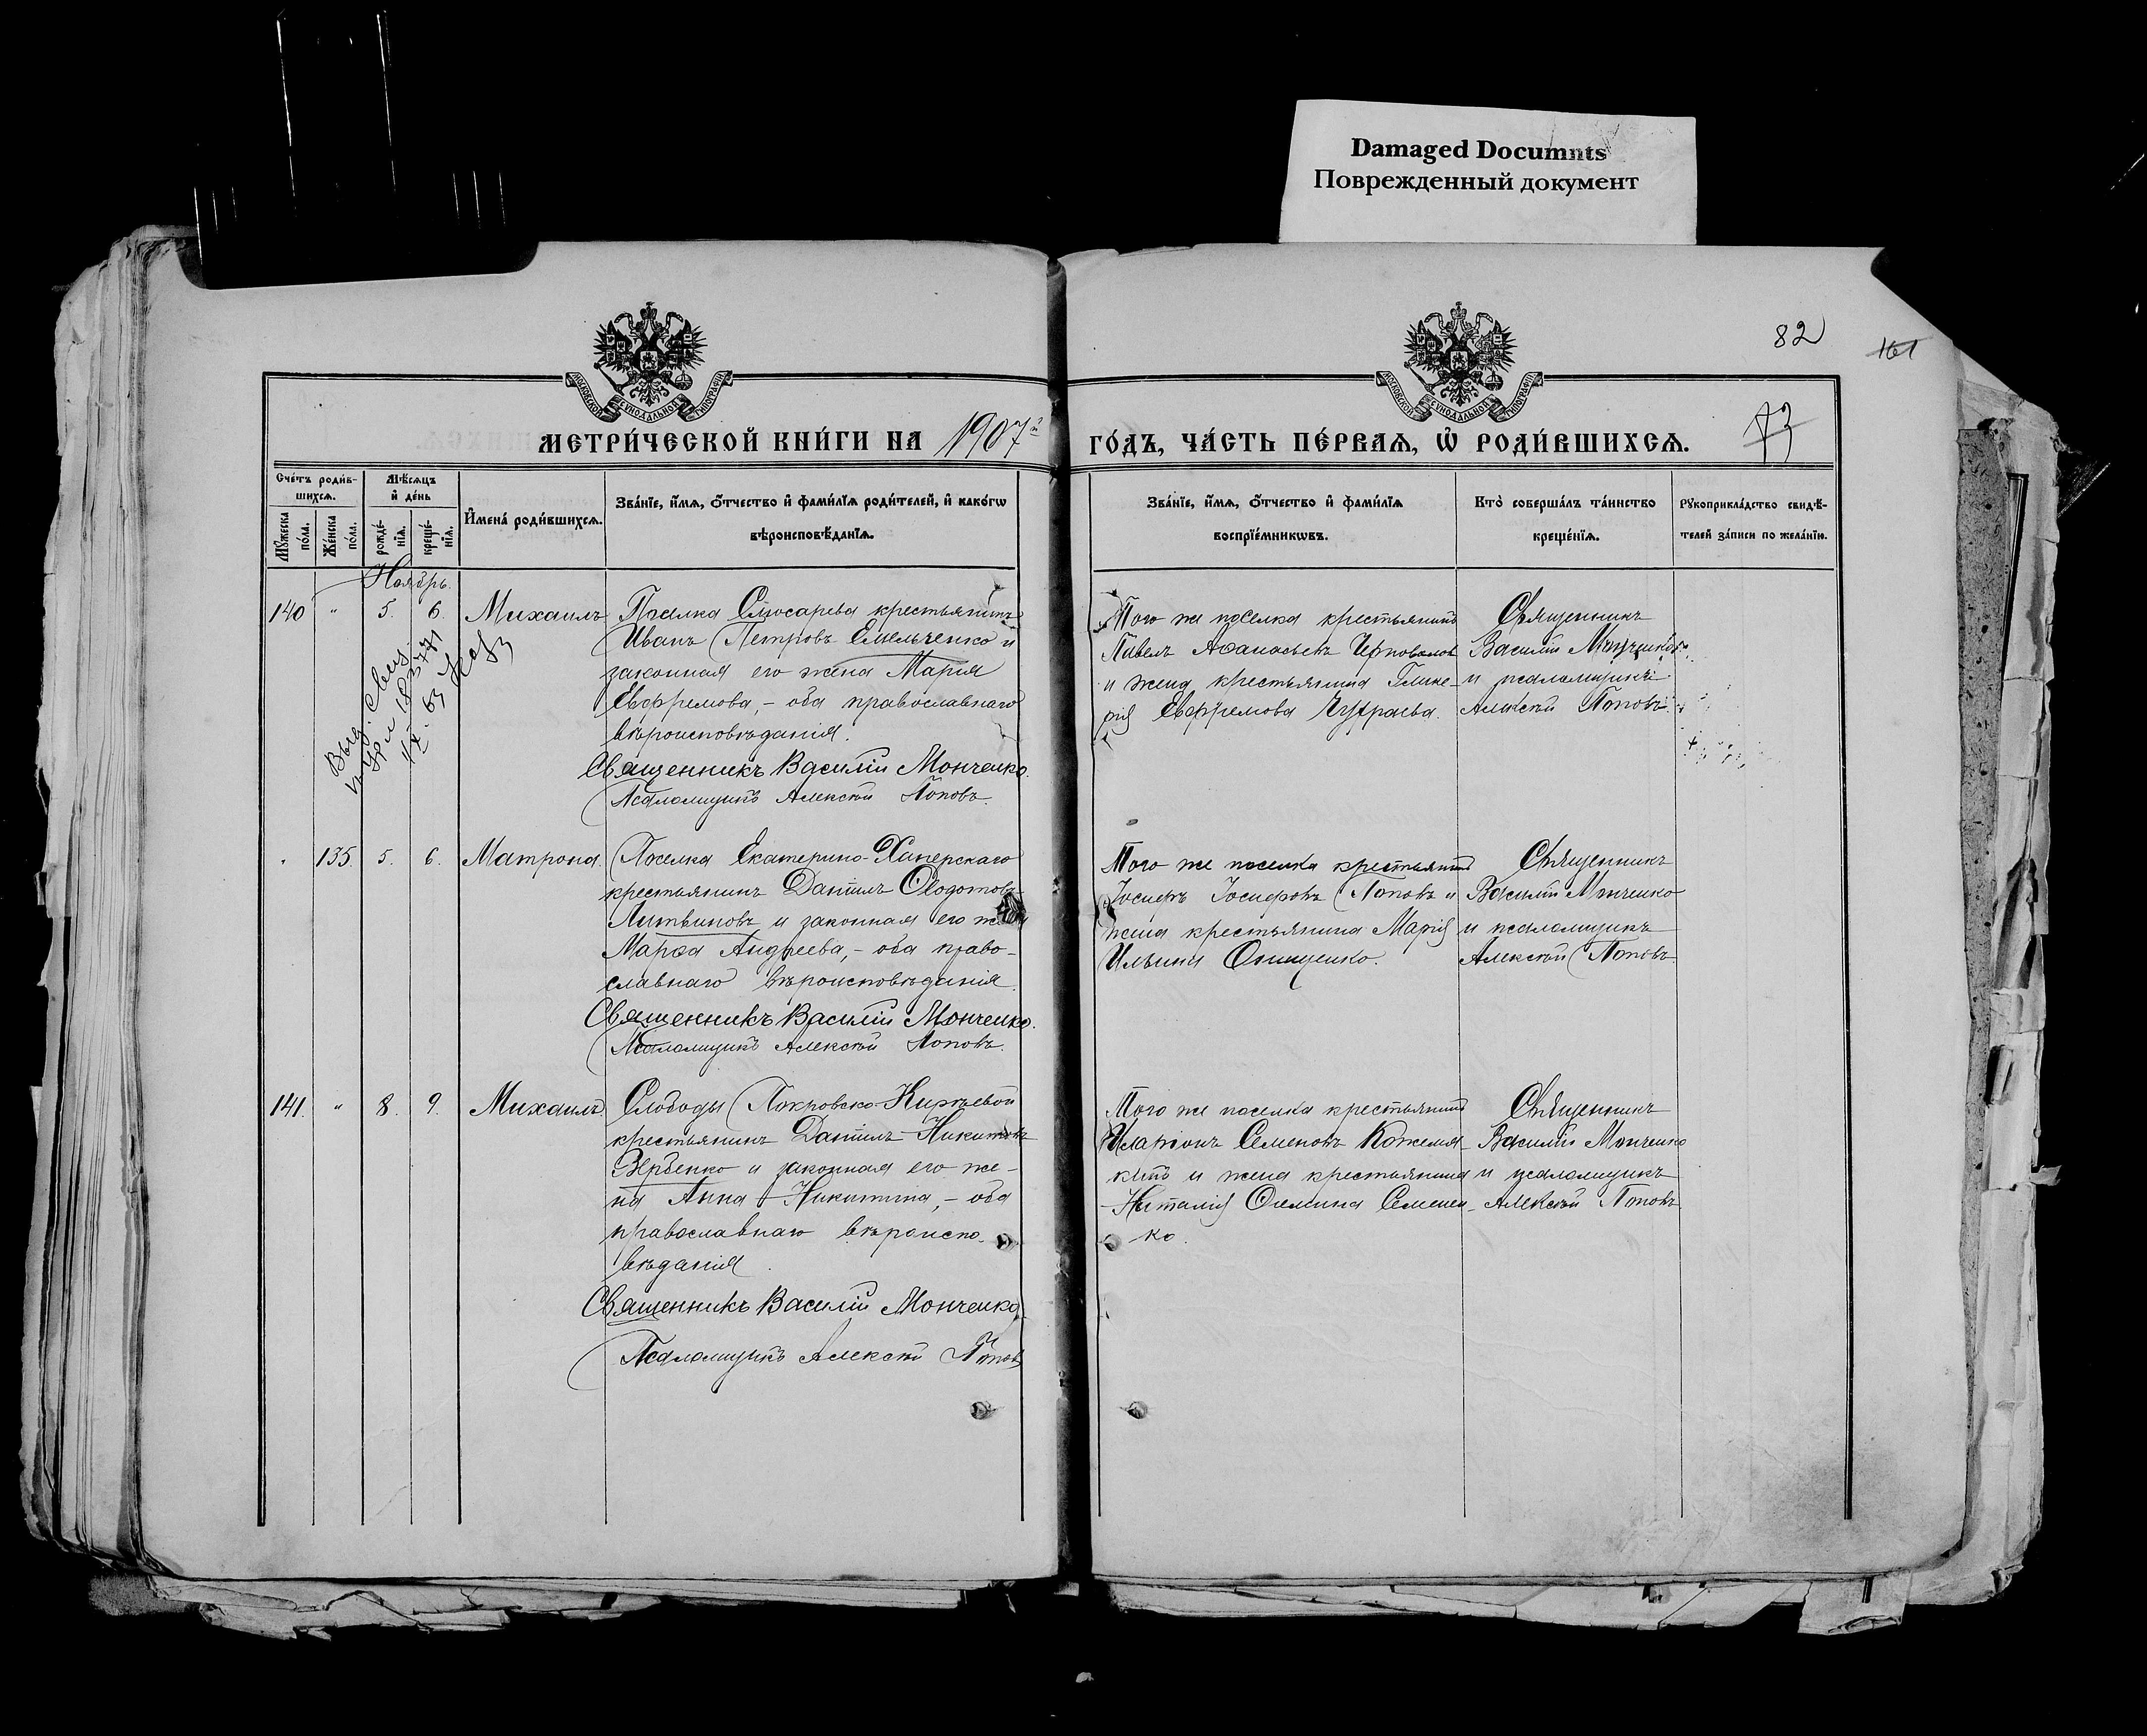 Damaged Documnts
Поврежденный документ
82
161
73
МОСКОВСКОЙ СѴНОДАЛЬНОЙ ТИПОГРАФІИ
МОСКОВСКОЙ СѴНОДАЛЬНОЙ ТИПОГРАФІИ
МЕТРИ́ЧЕСКОЙ КНИ́ГИ НА 1907й
ГО́ДЪ, ЧА́СТЬ ПЕ́РВАѦ, Ѡ҆ РОДИ́ВШИХСѦ.
Сче́тъ роди́в-
шихсѧ.
Мꙋ́жеска по́ла.
Же́нска по́ла.
Мѣ́сѧцъ
и҆ де́нь
рожде́-
нїѧ.
креще́-
нїѧ.
И҆мена̀ роди́вшихсѧ.
Зва́нїе, и҆́мѧ, ѻ҆́тчество и҆ фами́лїѧ роди́телей, и҆ како́гѡ
вѣроисповѣ́данїѧ.
Зва́нїе, и҆́мѧ, ѻ҆́тчество и҆ фами́лїѧ
воспрїе́мникѡвъ.
Кто̀ соверша́лъ та́инство
креще́нїѧ.
Рꙋкоприкла́дство свидѣ́-
телей за́писи по жела́нїю.
Ноябрь.
140 " 5. 6. Михаилъ
Поселка Слюсарева крестьянинъ
Иванъ Петровъ Емельченко и
законная его жена Мария
Евфремова, - оба православнаго
вѣроисповѣданія.
Священникъ Василій Монченко.
Псаломщикъ Алексѣй Поповъ.
Того же поселка крестьянинъ
Павелъ Аѳанасьевъ
и жена крестьянина Глике-
рія Евфремова
Священникъ
Василій Монченко
и псаломщикъ
Алексѣй Поповъ.
Выд. свид.
" 135. 5. 6. Матрона.
Поселка Екатерино-Хаперскаго
крестьянинъ Даніилъ Ѳеодотовъ
Литвиновъ и законная его жена
Марѳа Андреева, - оба право-
славнаго вѣроисповѣданія.
Священникъ Василій Монченко.
Псаломщикъ Алексѣй Поповъ.
Того же поселка крестьянинъ
Іосифъ Іосифовъ Поповъ и
жена крестьянина Марія
Ильина Онищенко.
Священникъ
Василій Монченко
и псаломщикъ
Алексѣй Поповъ.
141. " 8. 9. Михаилъ
Слободы Покровско-Кирѣевой
крестьянинъ Даніилъ Никитовъ
Вербенко и законная его же-
на Анна Никитина, - оба
православнаго вѣроиспо-
вѣданія.
Священникъ Василій Монченко.
Псаломщикъ Алексѣй Поповъ
Того же поселка крестьянинъ
Иларіонъ Семеновъ Кожемя-
кинъ и жена крестьянина
Наталія Семенен-
ко.
Священникъ
Василій Монченко
и псаломщикъ
Алексѣй Поповъ